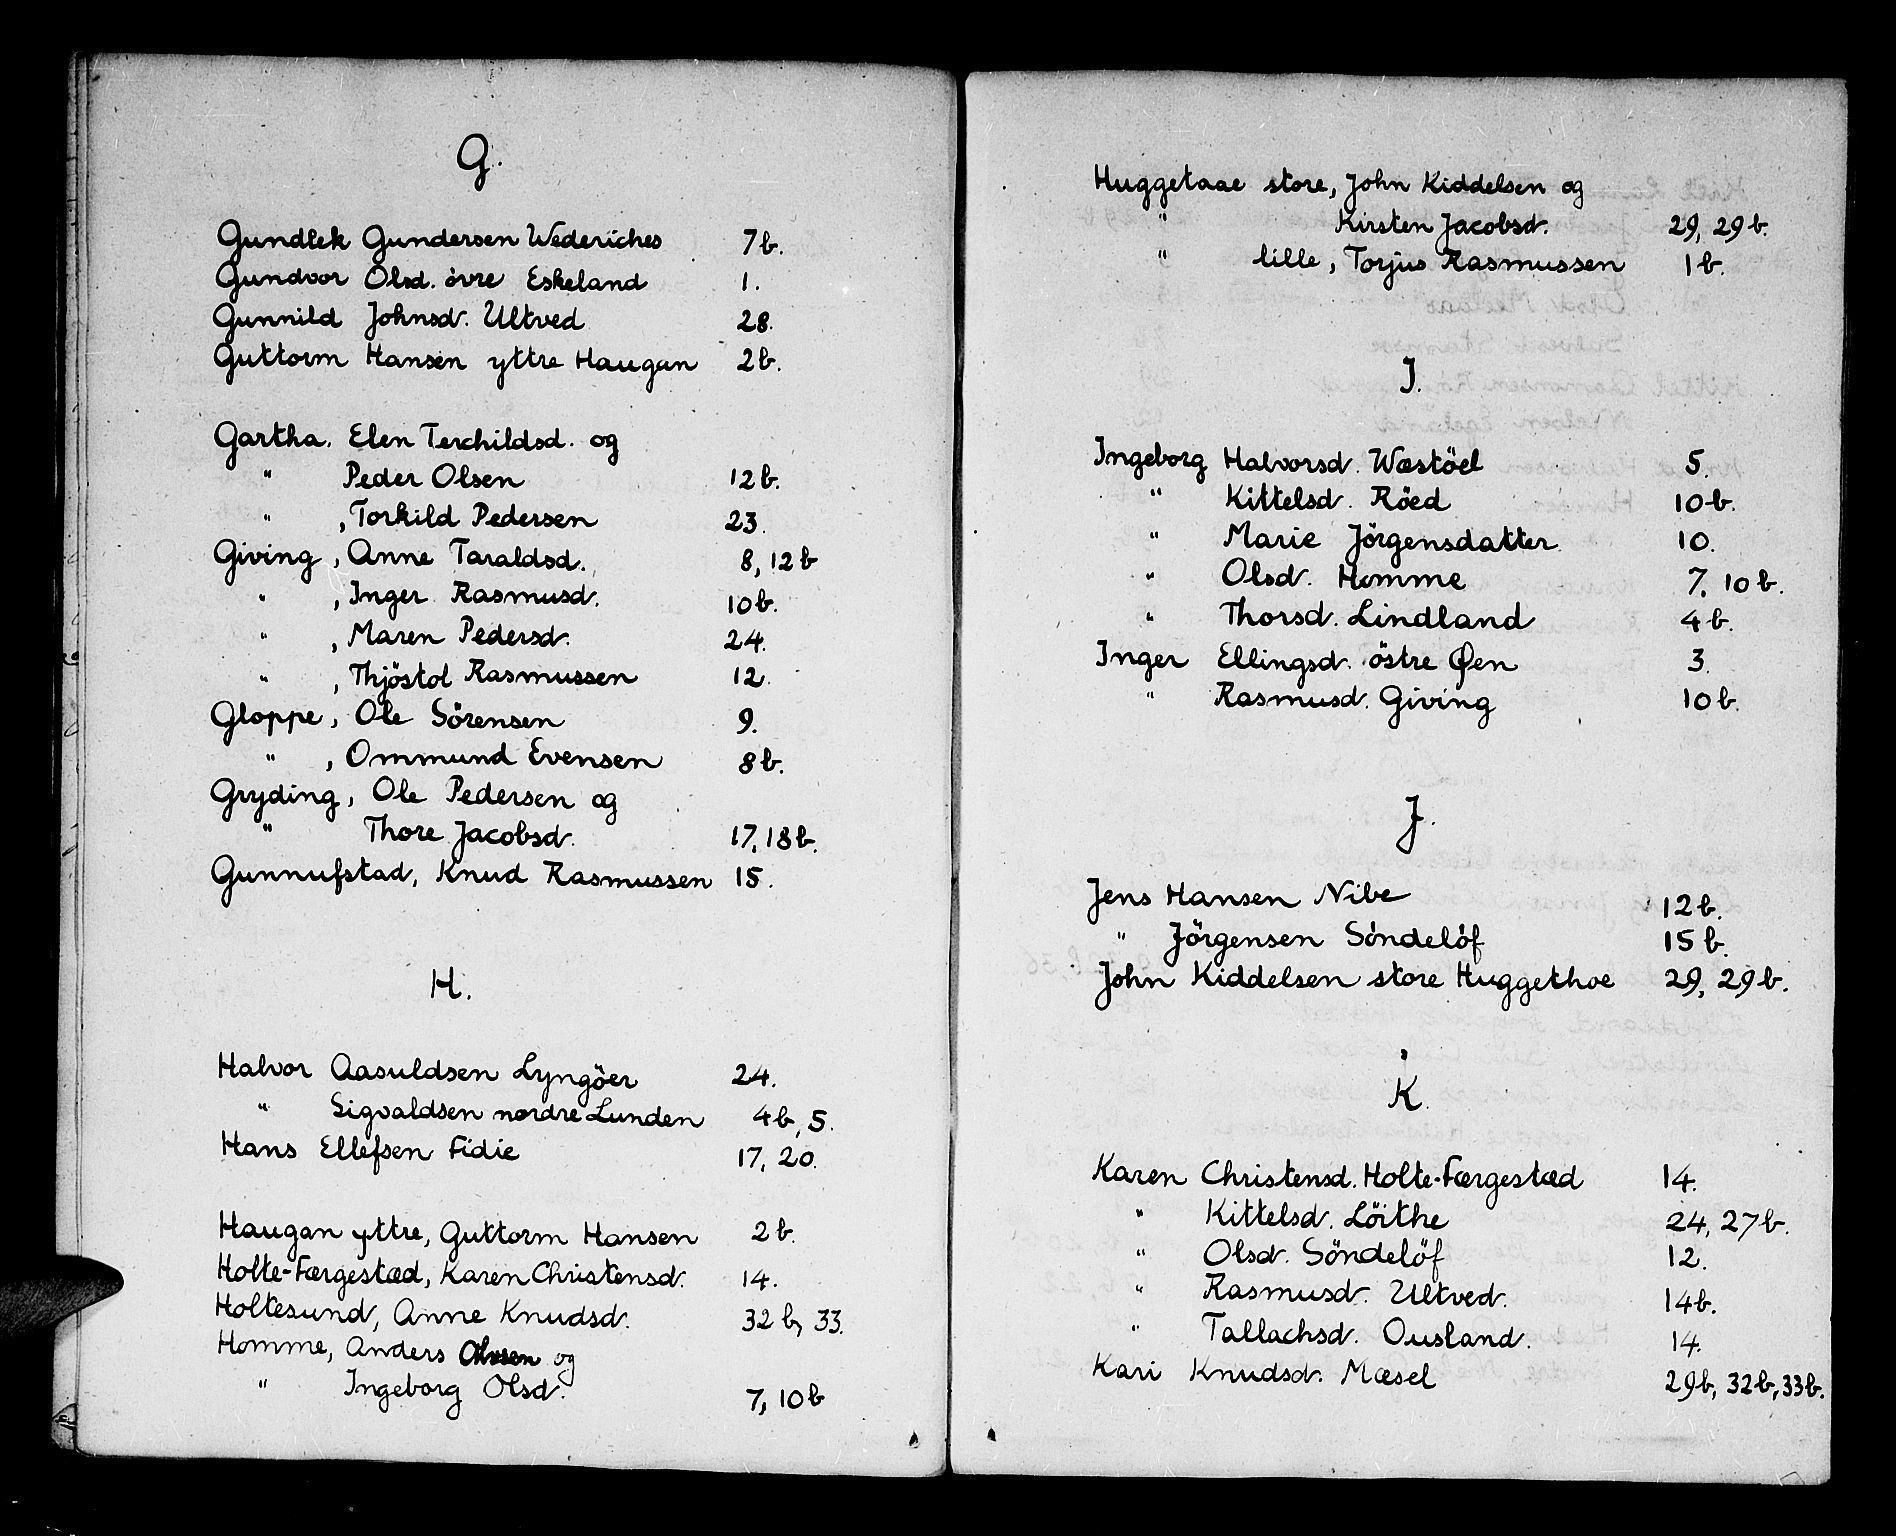 G.
Gundlek Gundersen Wederiches 7b.
Gundvor Olsd. övre Eskeland 1.
Gunnild Johnsd. Ultved 28.
Guttorm Hansen yttre Haugan 2b.
Gartha. Elen Terchildsd. og
" Peder Olsen 12b.
" , Torkild Pedersen 23.
Giving, Anne Taraldsd. 8, 12b
" , Inger Rasmusd. 10b.
" , Maren Pedersd. 24.
" , Thjöstol Rasmussen 12.
Gloppe, Ole Sörensen 9.
" , Ommund Evensen 8b.
Gryding, Ole Pedersen og
" Thore Jacobsd. 17, 18b.
Gunnufstad, Knud Rasmussen 15.
H.
Halvor Aasuldsen Lyngöer 24.
" Sigvaldsen nordre Lunden 4b, 5.
Hans Ellefsen Fidie 17, 20.
Haugan yttre, Guttorm Hansen 2b.
Holte-Færgestæd, Karen Christensd. 14.
Holtesund, Anne Knudsd. 32b, 33.
Homme, Anders Olsen og
" Ingeborg Olsd. 7, 10b
Huggetaae store, John Kiddelsen og
" Kirsten Jacobsd. 29, 29b.
" lille, Torjus Rasmussen 1b.
I.
Ingeborg Halvorsd. Wæstöel 5.
" Kittelsd. Röed 10b.
" Marie Jörgensdatter 10.
" Olsd. Homme 7, 10b.
" Thorsd. Lindland 4b.
Inger Ellingsd. östre Øen 3.
" Rasmusd. Giving 10b.
J.
Jens Hansen Nibe 12b.
" Jörgensen Söndelöf 15b.
John Kiddelsen store Huggethoe 29, 29b.
K.
Karen Christensd. Holte-Færgestæd 14.
" Kittelsd. Löithe 24, 27b.
" Olsd. Söndelöf 12.
" Rasmusd. Ultved. 14b.
" Tallachsd. Ousland. 14.
Kari Knudsd. Mæsel 29b, 32b, 33b.